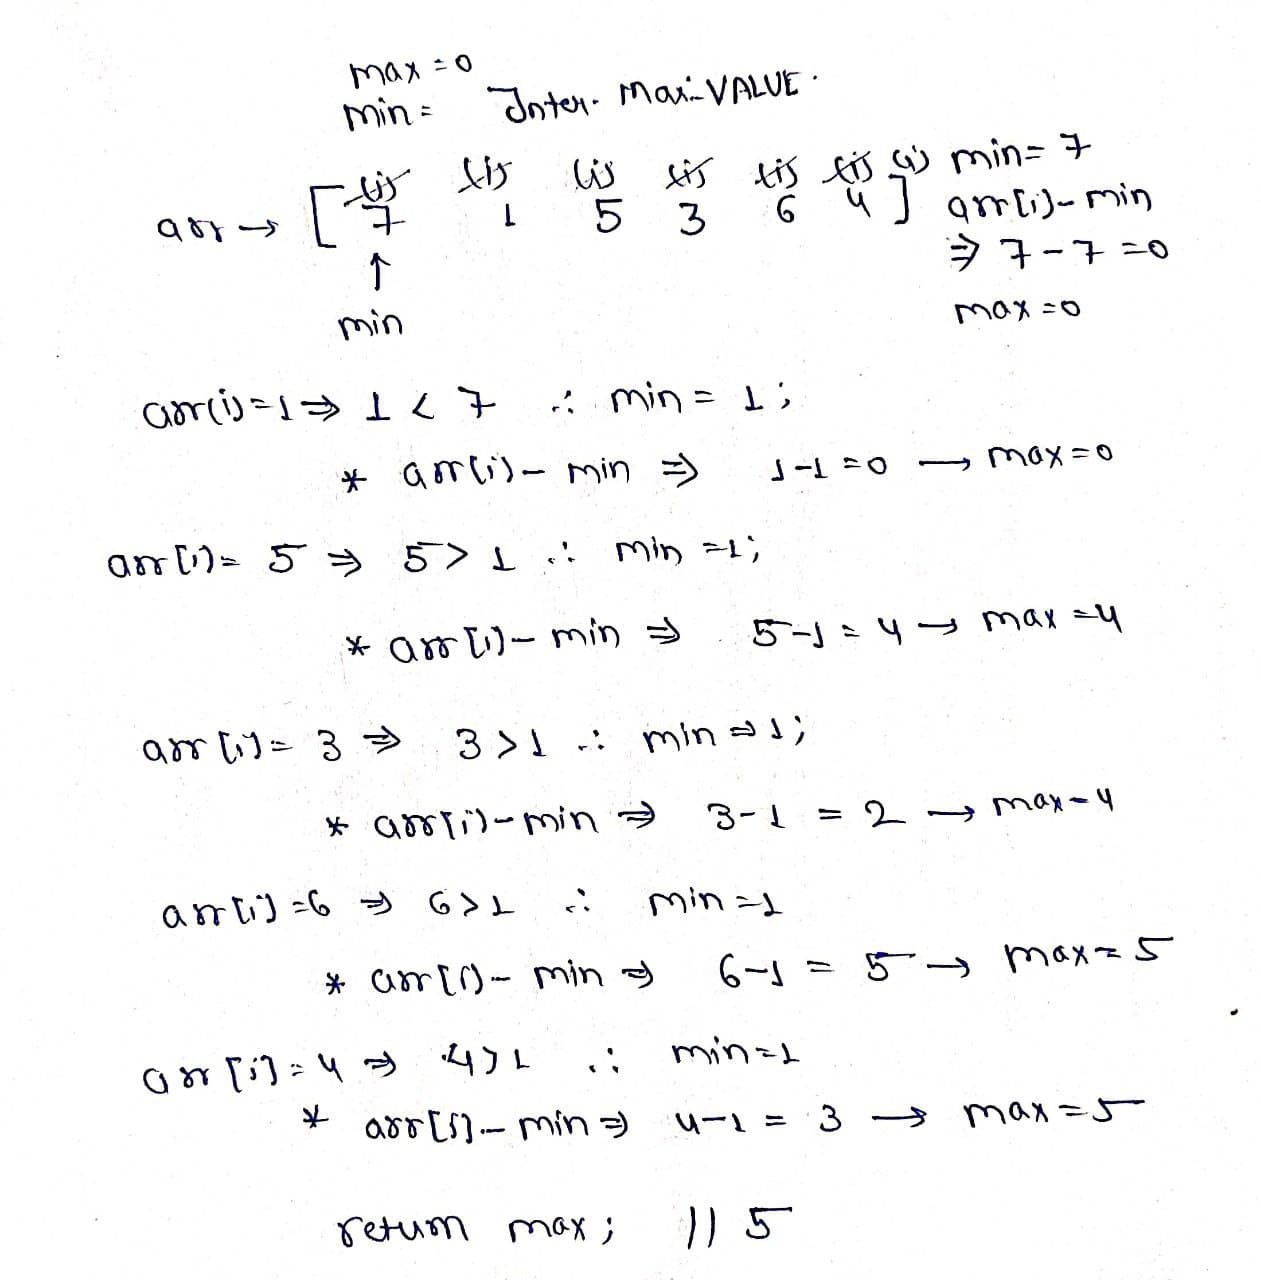 max = 0
min = Inter. Max-VALUE.
(i) (i) (i) (i) (i) (i) (i) min = 7
arr → [ 7 1 5 3 6 4 ] arr[i] - min
↑ ⇒ 7 - 7 = 0
min max = 0
arr(i) = 1 ⇒ 1 < 7 ∴ min = 1;
* arr(i) - min ⇒ 1 - 1 = 0 → max = 0
arr[i] = 5 ⇒ 5 > 1 ∴ min = 1;
* arr[i] - min ⇒ 5 - 1 = 4 → max = 4
arr[i] = 3 ⇒ 3 > 1 ∴ min ⇒ 1;
* arr[i] - min ⇒ 3 - 1 = 2 → max - 4
arr[i] = 6 ⇒ 6 > 1 ∴ min = 1
* arr[i] - min ⇒ 6 - 1 = 5 → max = 5
arr[i] = 4 ⇒ 4 > 1 ∴ min = 1
* arr[i] - min ⇒ 4 - 1 = 3 → max = 5
return max; // 5